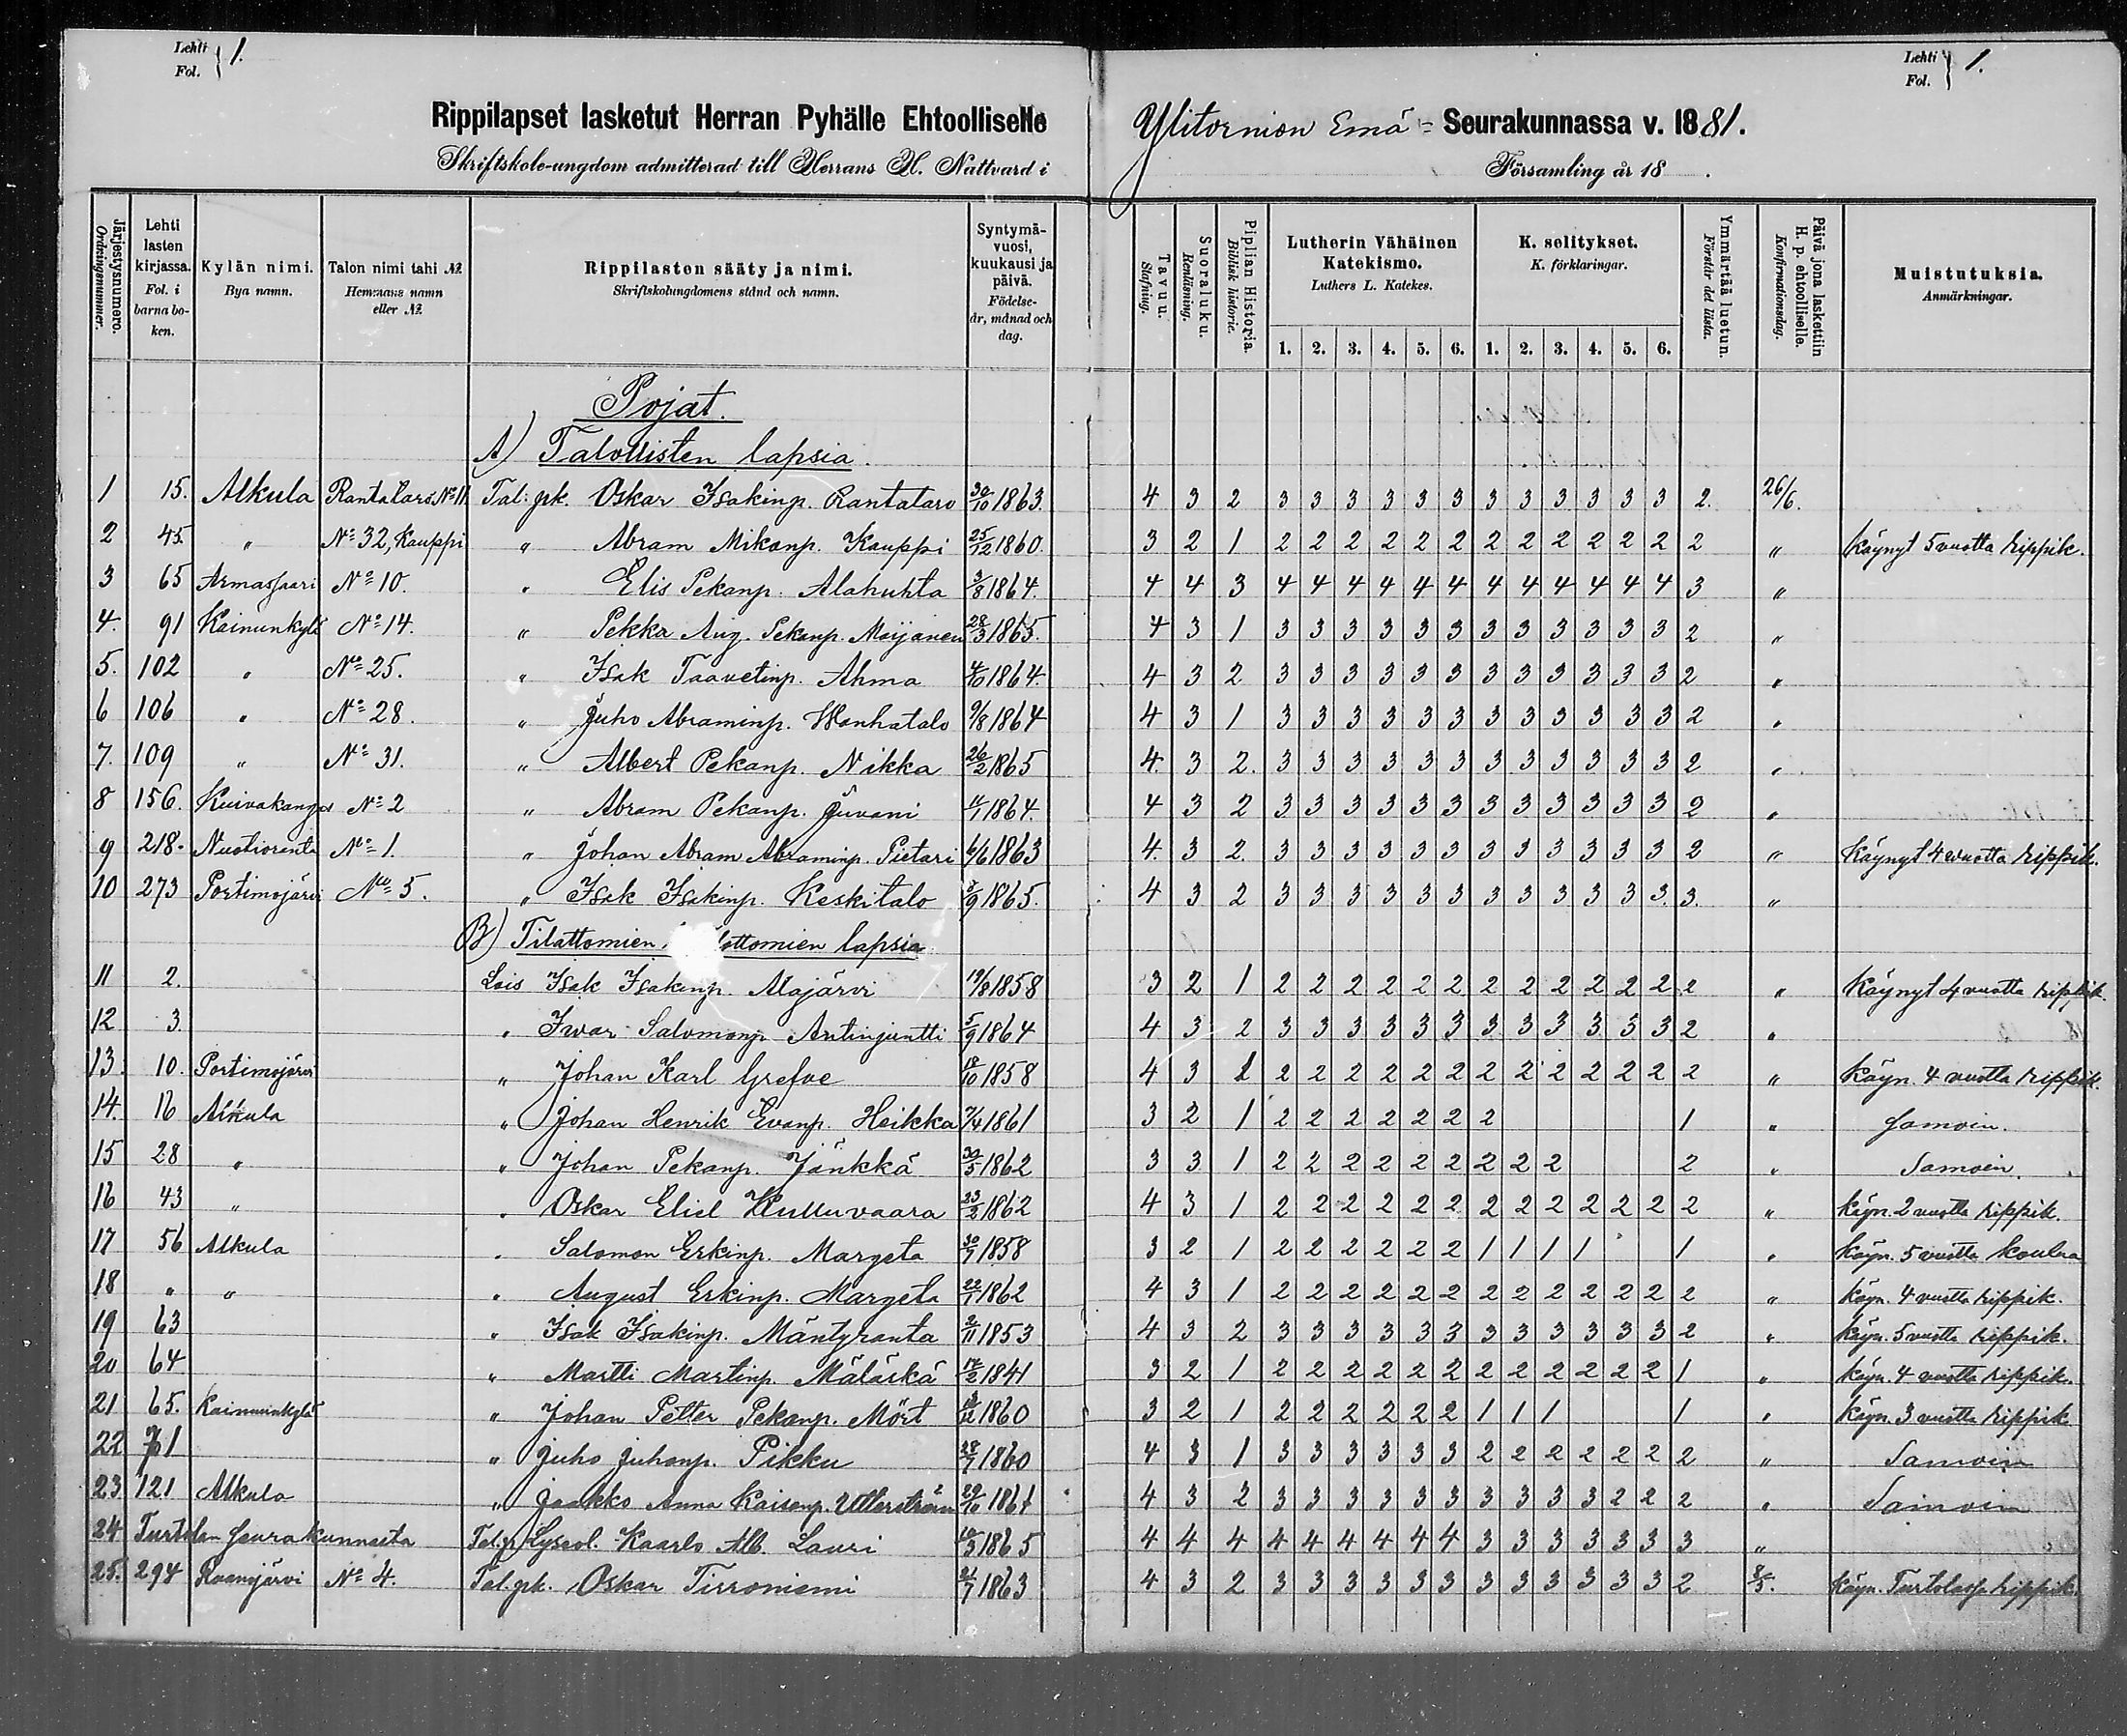 Lehti
Fol. } 1.
Lehti
Fol. } 1.
Rippilapset lasketut Herran Pyhälle Ehtoolliselle Ylitornion Emä = Seurakunnassa v. 1881.
Skriftskole-ungdom admitterad till Herrans H. Nattvard i Församling år 18 .
Järjestysnumero. Ordningsnummer.
Lehti lasten kirjassa. Fol. i barna boken.
Kylän nimi. Bya namn.
Talon nimi tahi № Hemmans namn eller №
Rippilasten sääty ja nimi. Skriftskolungdomens stånd och namn.
Syntymävuosi, kuukausi ja päivä. Födelseår, månad och dag.
Tavuu. Stafning.
Suoraluku. Renläsning.
Piplian Historia. Biblisk historie.
Lutherin Vähäinen Katekismo. Luthers L. Katekes.
1. 2. 3. 4. 5. 6.
K. selitykset. K. förklaringar.
1. 2. 3. 4. 5. 6.
Ymmärtää luetun. Förstår det lästa.
Päivä jona laskettiin H. p. ehtoolliselle. Konfirmationsdag.
Muistutuksia. Anmärkningar.
Pojat.
A) Talollisten lapsia.
1 15. Alkula Rantataro No 11 Tal: pk. Oskar Isakinp. Rantataro 30/10 1863. 4 3 2 3 3 3 3 3 3 3 3 3 3 3 3 2. 26/6.
2 45. " No 32, Kauppi " Abram Mikonp. Kauppi 25/12 1860. 3 2 1 2 2 2 2 2 2 2 2 2 2 2 2 2 " Käynyt 5 vuotta rippik.
3 65 Armassaari No 10. " Elis Pekanp. Alahuhta 3/8 1864. 4 4 3 4 4 4 4 4 4 4 4 4 4 4 4 3 "
4. 91 Kainunkylä No 14. " Pekka Aug. Pekanp. Moijanen 28/3 1865. 4 3 1 3 3 3 3 3 3 3 3 3 3 3 3 2 "
5. 102 " No 25. " Isak Taavetinp. Ahma 4/10 1864. 4 3 2 3 3 3 3 3 3 3 3 3 3 3 3 2 "
6 106 " No 28. " Juho Abraminp. Wanhatalo 9/8 1864 4 3 1 3 3 3 3 3 3 3 3 3 3 3 3 2 "
7. 109 " No 31. " Albert Pekanp. Nikka 26/2 1865 4. 3 2. 3 3 3 3 3 3 3 3 3 3 3 3 2 "
8 156. Kuivakangas No 2 " Abram Pekanp. Juvani 11/1 1864. 4 3 2 3 3 3 3 3 3 3 3 3 3 3 3 2 "
9 218. Nuotioranta No 1. " Johan Abram Abraminp. Pietari 6/6 1863 4. 3 2. 3 3 3 3 3 3 3 3 3 3 3 3 2 " Käynyt 4 vuotta rippik.
10 273 Portimojärvi No 5. " Isak Isakinp. Keskitalo 3/9 1865. 4 3 2 3 3 3 3 3 3 3 3 3 3 3 3. 3. "
B) Tilattomien lapsia
11 2. Lois Isak Isakinp. Alajärvi 19/8 1858 3 2 1 2 2 2 2 2 2 2 2 2 2 2 2 2 " Käynyt 4 vuotta rippik.
12 3 " Iwar Salomonp. Antinjuntti 5/9 1864 4 3 2 3 3 3 3 3 3 3 3 3 3 3 3 2 "
13. 10. Portimojärvi " Johan Karl Grefve 18/10 1858 4 3 1 2 2 2 2 2 2 2 2 2 2 2 2 2 " Käyn. 4 vuotta rippik.
14. 16 Alkula " Johan Henrik Evanp. Heikka 7/4 1861 3 2 1 2 2 2 2 2 2 2 1 " Samoin.
15 28 " " Johan Pekanp. Jänkkä 30/5 1862 3 3 1 2 2 2 2 2 2 2 2 2 2 " Samoin.
16 43 " " Oskar Eliel Kulluvaara 23/2 1862 4 3 1 2 2 2 2 2 2 2 2 2 2 2 2 2 " Käyn. 2 vuotta rippik.
17 56 Alkula " Salomon Erkinp. Margeta 30/7 1858 3 2 1 2 2 2 2 2 2 1 1 1 1 1 " Käyn. 5 vuotta koulua
18 " " " August Erkinp. Margeta 22/7 1862 4 3 1 2 2 2 2 2 2 2 2 2 2 2 2 2 " Käyn. 4 vuotta rippik.
19 63 " Isak Isakinp. Mäntyranta 2/11 1853 4 3 2 3 3 3 3 3 3 3 3 3 3 3 3 2 " Käyn. 5 vuotta rippik.
20 64. " Martti Martinp. Mäläskä 17/2 1841 3 2 1 2 2 2 2 2 2 2 2 2 2 2 2 1 " Käyn. 4 vuotta rippik.
21 65. Kainuunkylä " Johan Petter Pekanp. Mört 1860 3 2 1 2 2 2 2 2 2 1 1 1 1 " Käyn. 3 vuotta rippik
22 71 " Juho Juhonp. Pikku 28/7 1860 4 3 1 3 3 3 3 3 3 2 2 2 2 2 2 2 " Samoin
23 121 Alkula " Jaakko Anna Kaisanp. Utterström 29/10 1864 4 3 2 3 3 3 3 3 3 3 3 3 3 2 2 2 " Samoin
24 Turtolan seurakunnasta Tal.p. Lyseol. Kaarlo Alb. Lauri 1865 4 4 4 4 4 4 4 4 4 3 3 3 3 3 3 3 "
25. 294 Raanujärvi No 4. Tal. pk. Oskar Tirroniemi 21/7 1863 4 3 2 3 3 3 3 3 3 3 3 3 3 3 3 2 8/5. Käyn. Turtolassa rippik.